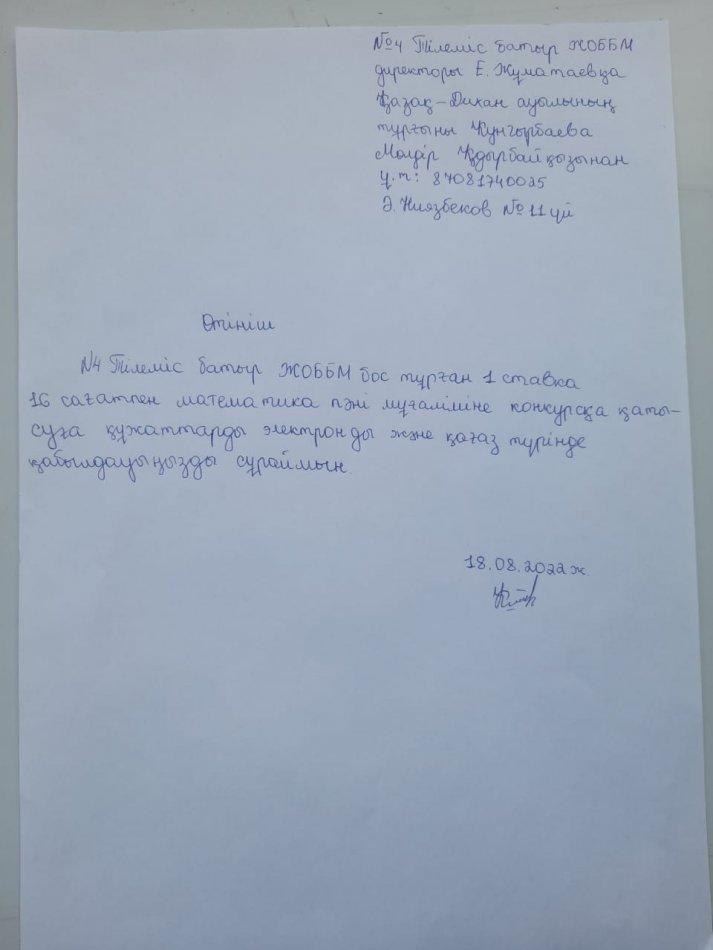 №4 Тілеміс батыр ЖОББМ
директоры Е. Жұматаевқа
Қазақ-Дихан ауылының
тұрғыны Кунгырбаева
Мөлдір Қдырбайқызынан
ұ.т: 87081740025
Ә. Ниязбеков №11 үй
Өтініш
№4 Тілеміс батыр ЖОББМ бос тұрған 1 ставка
16 сағатпен математика пәні мұғаліміне конкурсқа қаты-
суға құжаттарды электронды және қағаз түрінде
қабылдауыңызды сұраймын.
18.08.2022ж.